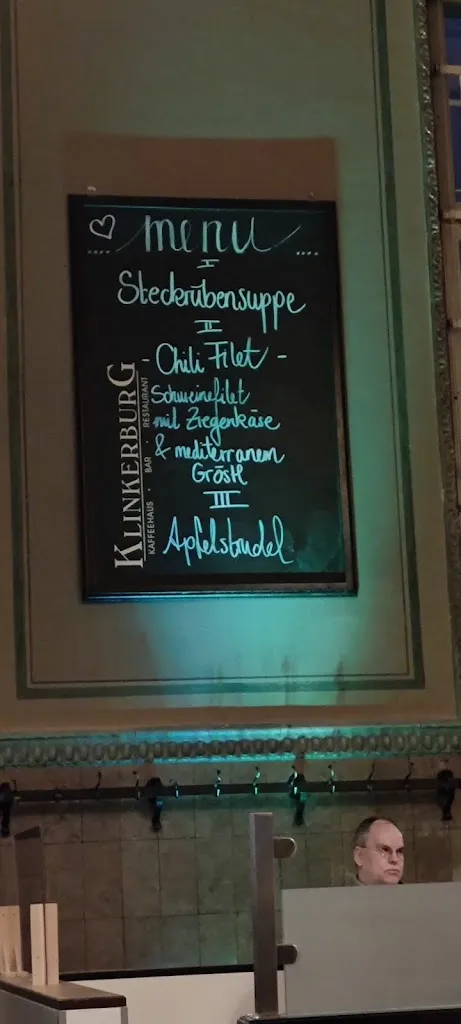 menu
I
Steckrübensuppe
II
- Chili Filet -
Schweinefilet
mit Ziegenkäse
& mediterranem
Gröstl
III
Apfelstrudel
KLINKERBURG
KAFFEEHAUS · BAR · RESTAURANT